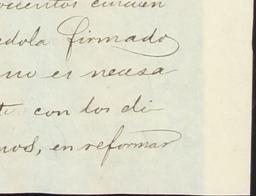 ocientos cincuen
edola firmado
no es necesa
te con los di
mos, en reformar